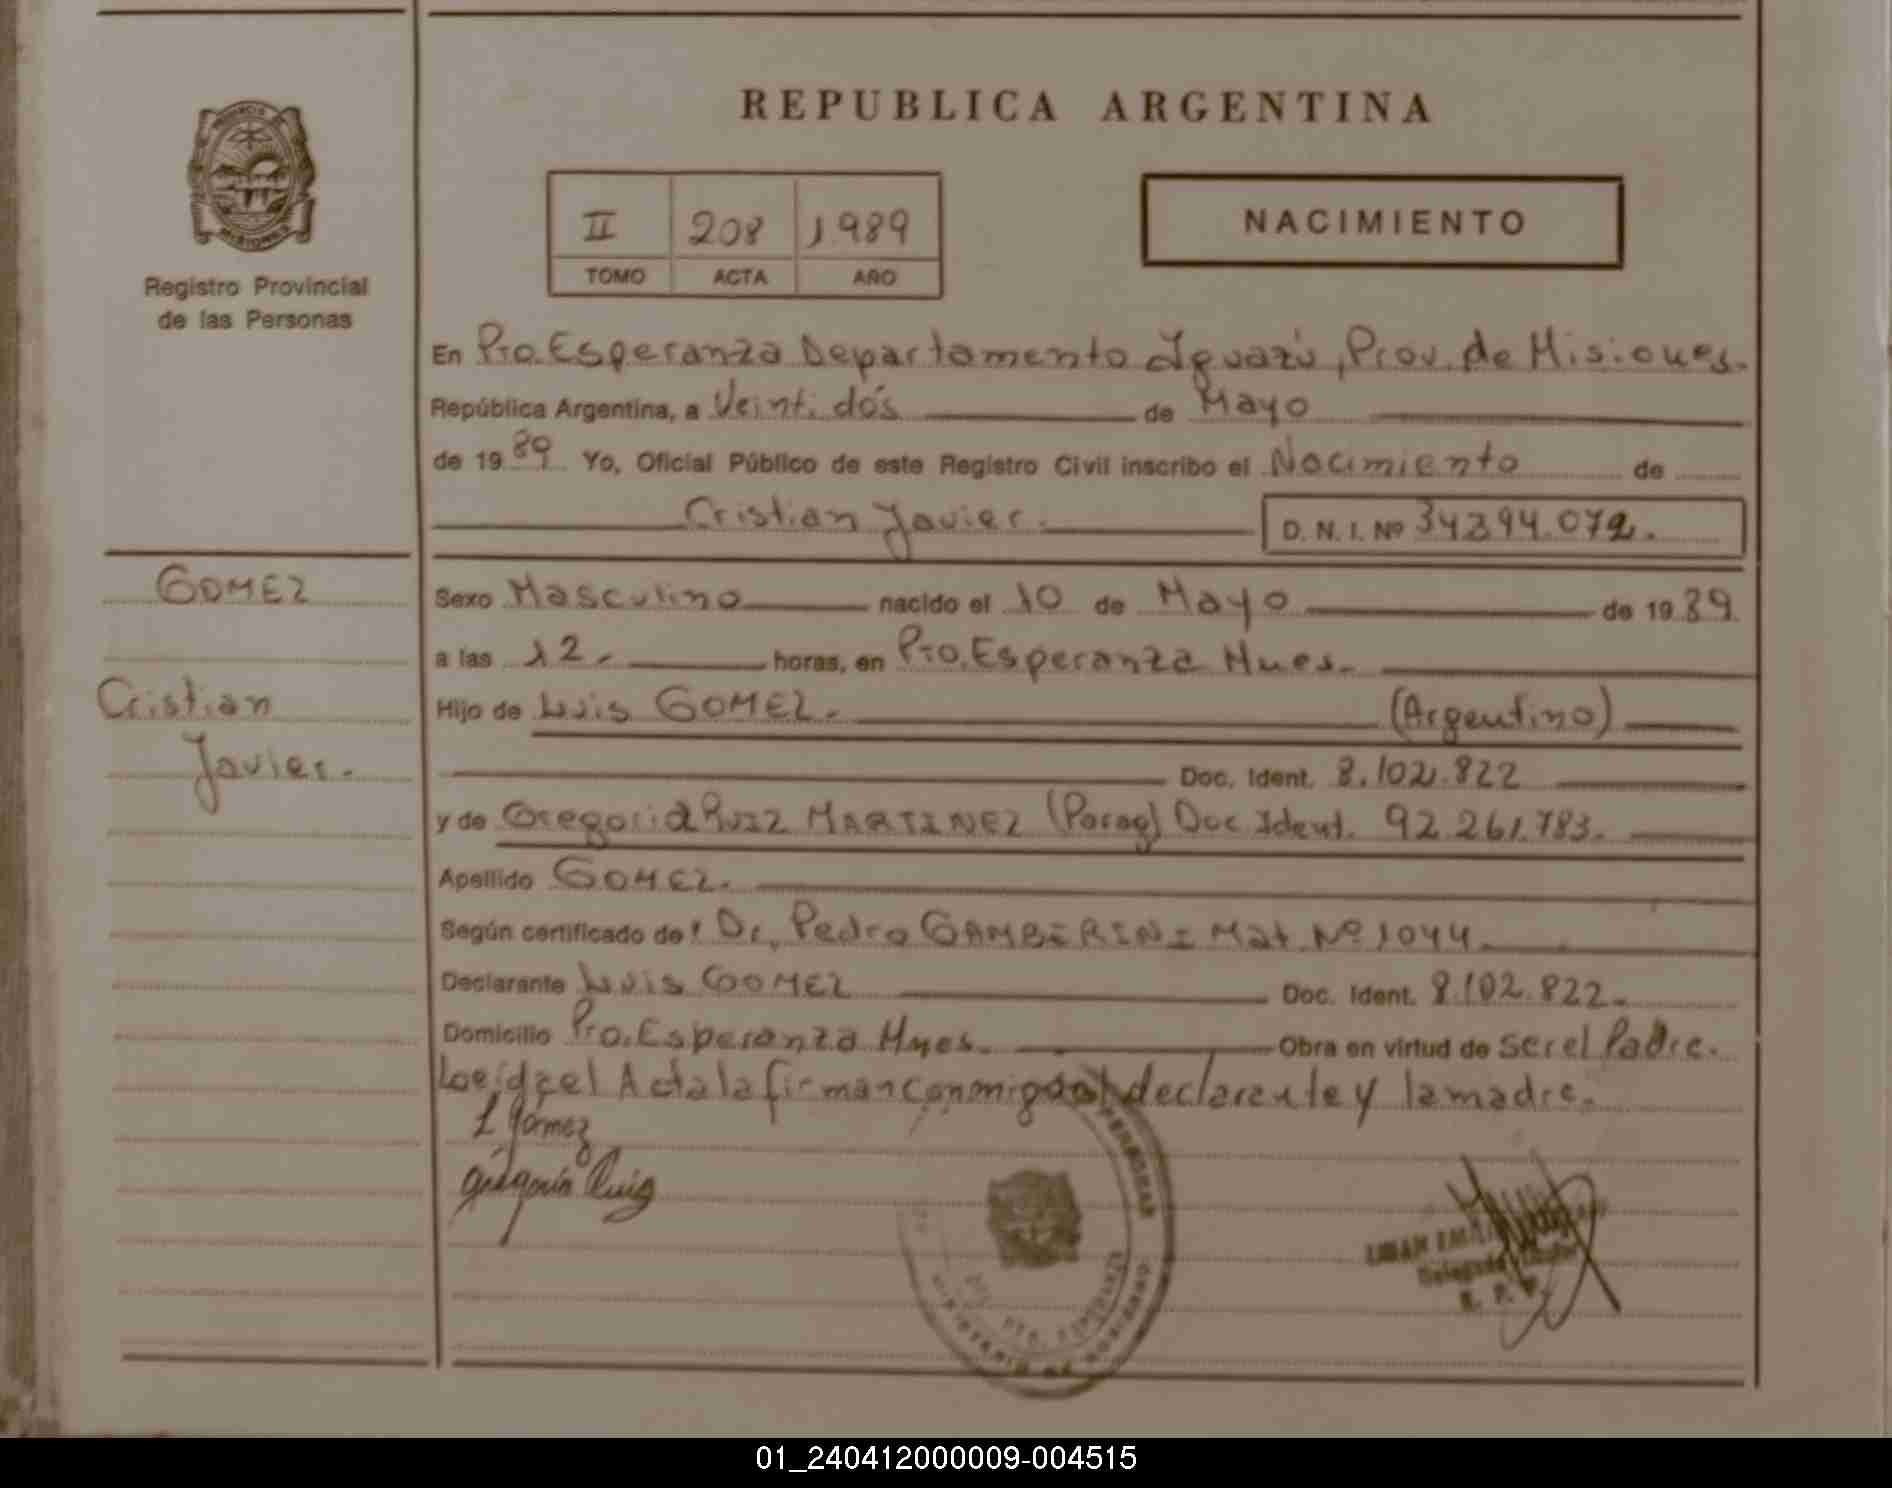 REPUBLICA ARGENTINA
MISIONES
Registro Provincial
de las Personas
II 208 1989
TOMO ACTA AÑO
NACIMIENTO
En Pto. Esperanza Departamento Iguazú, Prov. de Misiones.
República Argentina, a Veinti dós de Mayo
de 1989 Yo, Oficial Público de este Registro Civil inscribo el Nacimiento de
Cristian Javier. D. N. I. Nº 34394.072.
GOMEZ
Cristian
Javier.
Sexo Masculino nacido el 10 de Mayo de 1989.
a las 12. horas, en Pto. Esperanza Mnes.
Hijo de Luis GOMEZ. (Argentino)
Doc. Ident. 8.102.822
y de Gregoria RUIZ MARTINEZ (Parag) Doc Ident. 92.261.783.
Apellido GOMEZ.
Según certificado de: Dr. Pedro GAMBERINI Mat. Nº 1044.
Declarante Luis GOMEZ Doc. Ident. 8.102.822.
Domicilio Pto. Esperanza Mnes. Obra en virtud de ser el Padre.
Leida el Acta la firman conmigo el declarante y la madre.
L Gomez
gregoria Ruiz
PTO. ESPERANZA
MINISTERIO DE GOBIERNO
R. P. P.
01_240412000009-004515